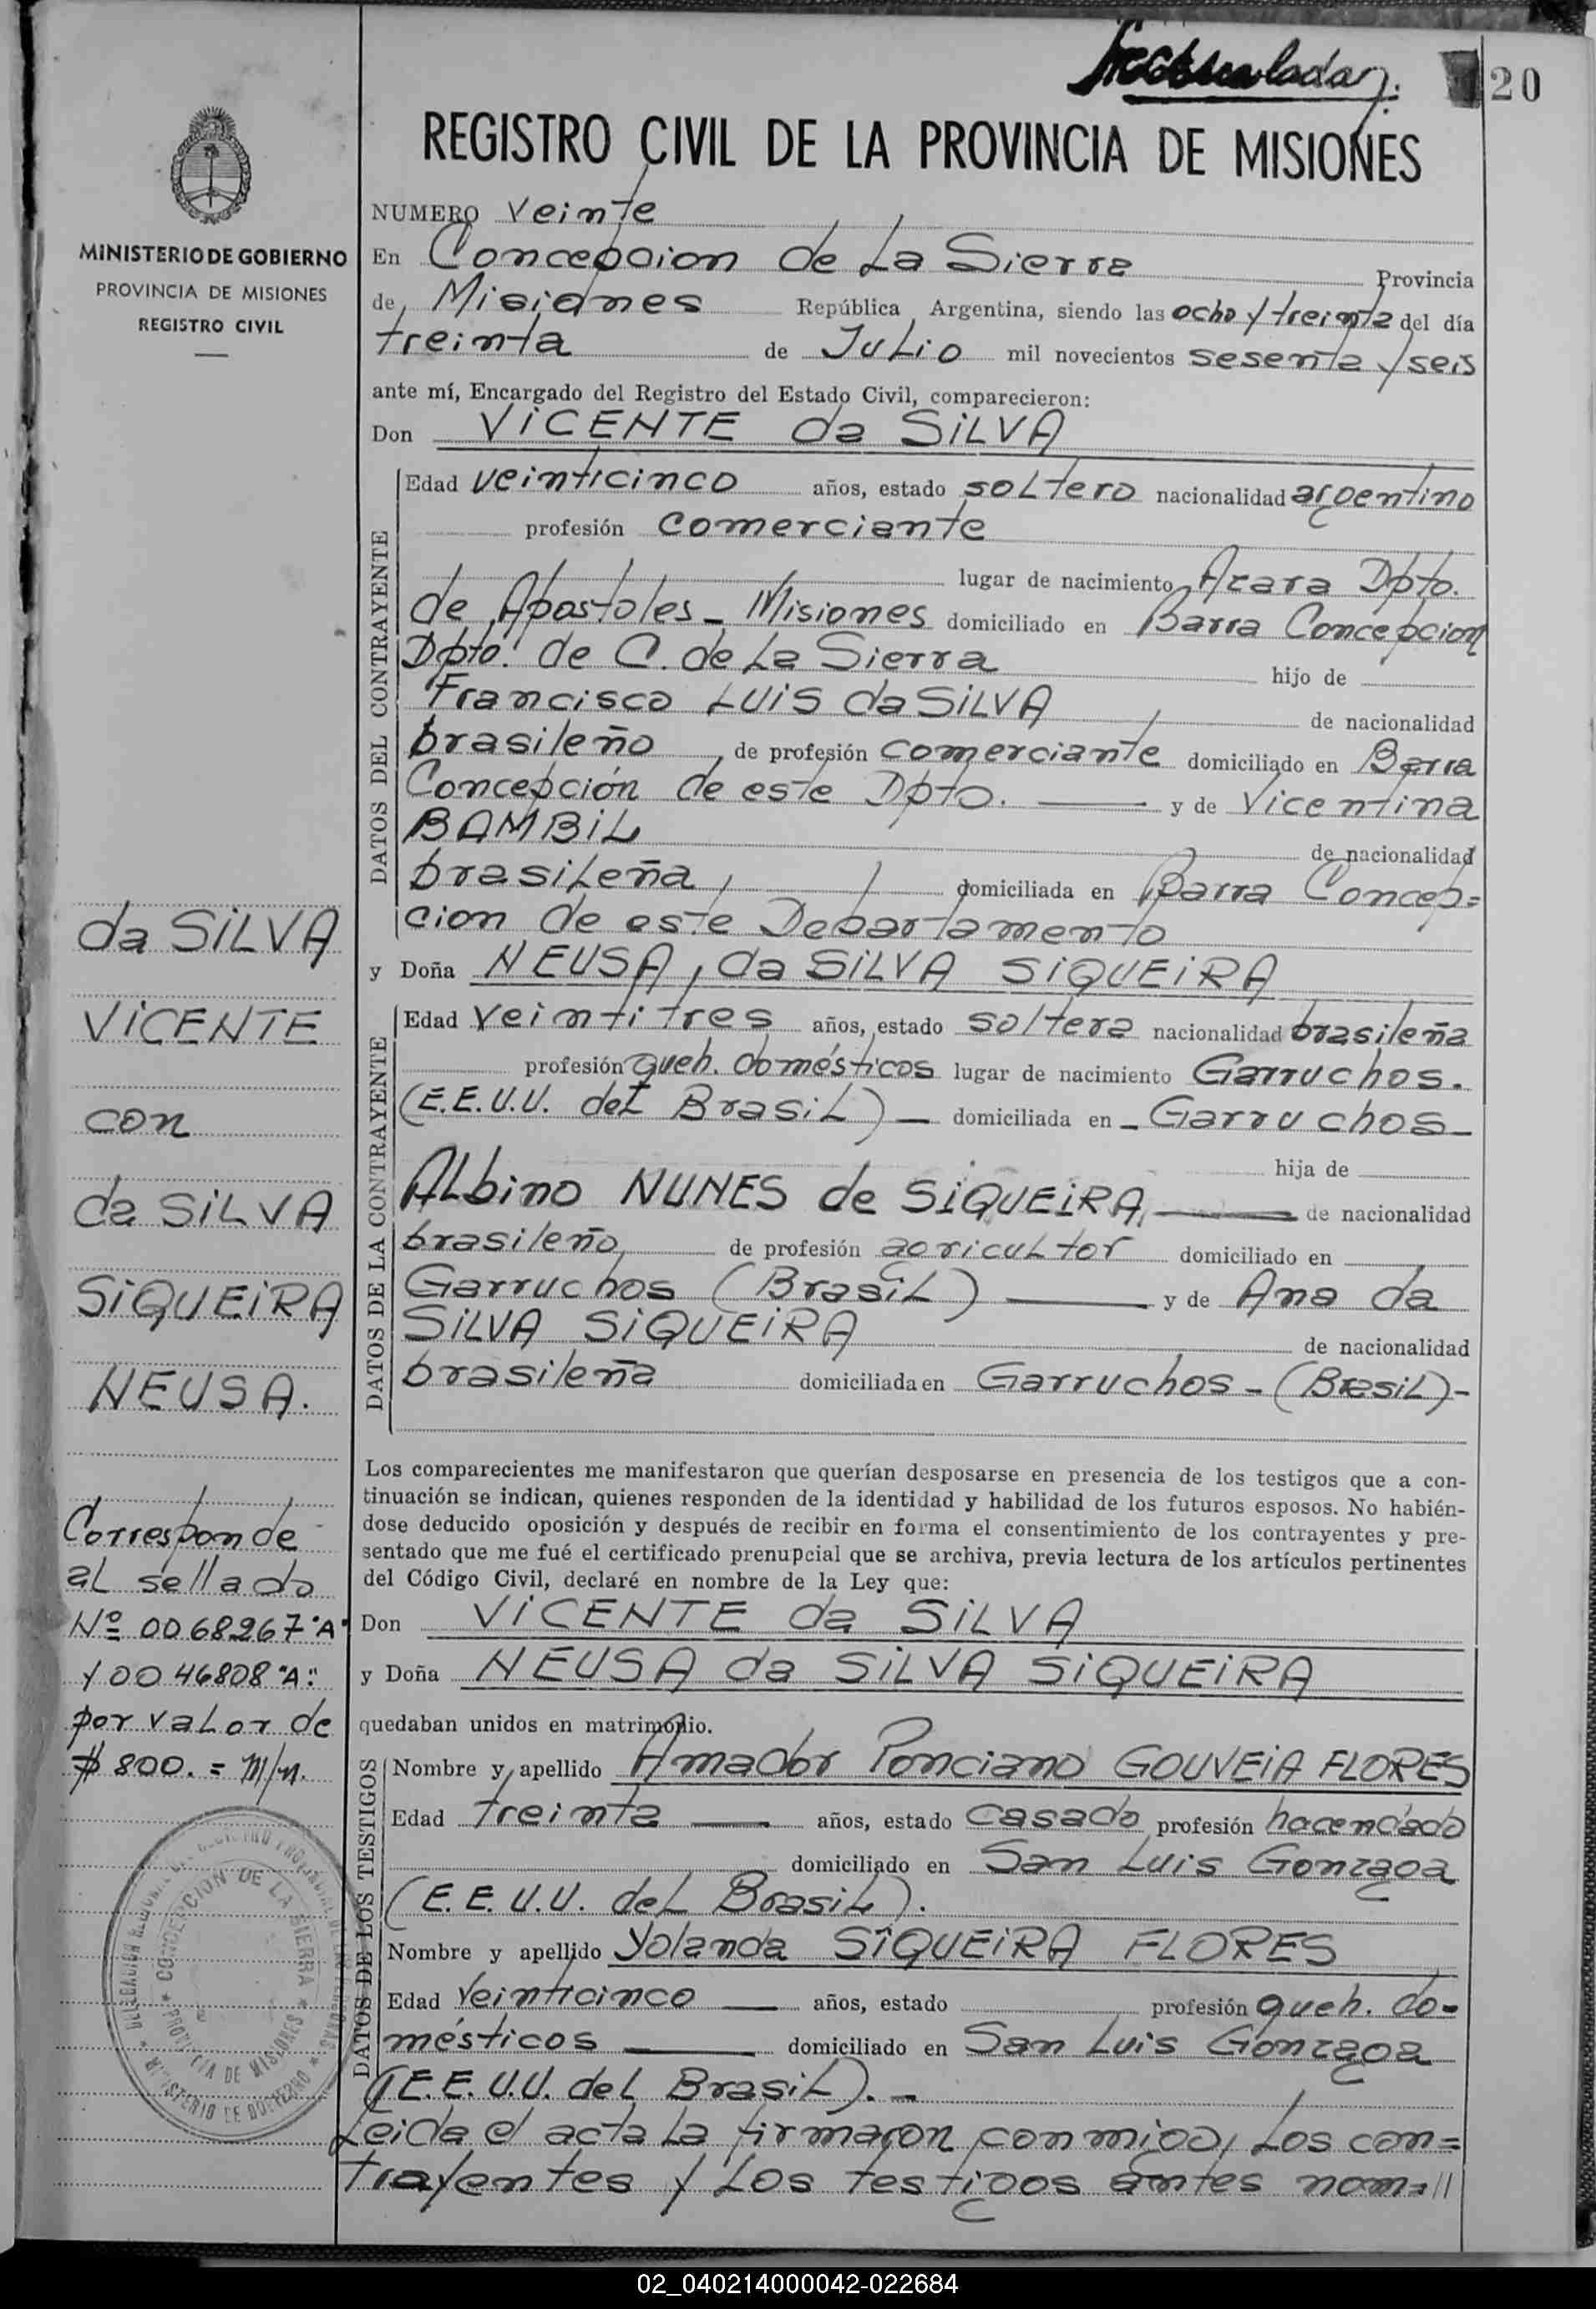 20
REGISTRO CIVIL DE LA PROVINCIA DE MISIONES
MINISTERIO DE GOBIERNO
PROVINCIA DE MISIONES
REGISTRO CIVIL
NUMERO Veinte
En Concepcion de La Sierra Provincia
de Misiones República Argentina, siendo las ocho y treinta del día
treinta de Julio mil novecientos sesenta y seis
ante mí, Encargado del Registro del Estado Civil, comparecieron:
Don VICENTE da SILVA
DATOS DEL CONTRAYENTE
Edad veinticinco años, estado soltero nacionalidad argentino
profesión comerciante
lugar de nacimiento Azara Dpto.
de Apostoles - Misiones domiciliado en Barra Concepcion
Dpto. de C. de La Sierra hijo de
Francisco LUIS da SILVA de nacionalidad
brasileño de profesión comerciante domiciliado en Barra
Concepción de este Dpto. y de Vicentina
BAMBIL de nacionalidad
brasileña domiciliada en Barra Concep=
cion de este Departamento
y Doña NEUSA, da SILVA SIQUEIRA
DATOS DE LA CONTRAYENTE
Edad Veintitres años, estado soltera nacionalidad brasileña
profesión queh. domésticos lugar de nacimiento Garruchos.
(E.E.U.U. del Brasil) — domiciliada en - Garruchos -
hija de
Albino NUNES de SIQUEIRA — de nacionalidad
brasileño de profesión agricultor domiciliado en
Garruchos (Brasil) — y de Ana da
SILVA SIQUEIRA de nacionalidad
brasileña domiciliada en Garruchos - (Brasil) -
Los comparecientes me manifestaron que querían desposarse en presencia de los testigos que a con-
tinuación se indican, quienes responden de la identidad y habilidad de los futuros esposos. No habién-
dose deducido oposición y después de recibir en forma el consentimiento de los contrayentes y pre-
sentado que me fué el certificado prenupcial que se archiva, previa lectura de los artículos pertinentes
del Código Civil, declaré en nombre de la Ley que:
Don VICENTE da SILVA
y Doña NEUSA da SILVA SIQUEIRA
quedaban unidos en matrimonio.
DATOS DE LOS TESTIGOS
Nombre y apellido Amador Ponciano GOUVEIA FLORES
Edad treinta — años, estado casado profesión hacendado
domiciliado en San Luis Gonzaga
(E.E.U.U. del Brasil).
Nombre y apellido Yolanda SIQUEIRA FLORES
Edad Veinticinco — años, estado profesión queh. do-
mésticos — domiciliado en San Luis Gonzaga
(E.E.U.U. del Brasil). -
Leida el acta la firmaron conmigo, los con=
trayentes y los testigos antes nom=//
da SILVA
VICENTE
con
da SILVA
SIQUEIRA
NEUSA.
Corresponde
al sellado
Nº 0068267 "A"
y 0046808 "A":
por valor de
$ 800. = m/n.
CONCEPCION DE LA SIERRA
PROVINCIA DE MISIONES
MINISTERIO DE GOBIERNO
02_040214000042-022684